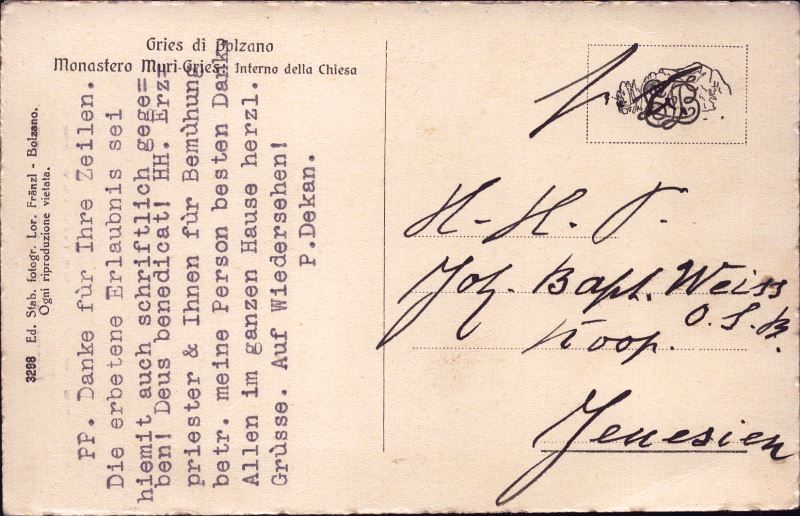 Gries di Bolzano
Monastero Muri-Gries: Interno della Chiesa
3298 Ed. Stab. fotogr. Lor. Fränzl - Bolzano.
Ogni riproduzione vietata.
PP. Danke fùr Ihre Zeilen.
Die erbetene Erlaubnis sei
hiemit auch schriftlich gege=
ben! Deus benedicat! HH. Erz=
priester & Ihnen fùr Bemùhung
betr. meine Person besten Dank,
Allen im ganzen Hause herzl.
Grùsse. Auf Wiedersehen!
P.Dekan.
H. H. P.
Joh. Bapt. Weiss
O. S. B.
Koop.
Jenesien